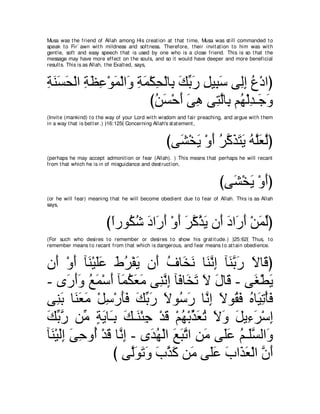 Musa was the friend of Allah among His creation at that time, Musa was still commanded to
speak to Fir`awn with mildness and softness. Therefore, their invitation to him was with
gentle, soft and easy speech that is used by one who is a close friend. This is so that the
message may have more effect on the souls, and so it would have deeper and more beneficial
results. This is as Allah, the Exalted, says,
﴿ادْعُ إِلَى سَبِيلِ رَبِّكَ بِالْحِكْمَةِ وَالْمَوْعِظَةِ الْحَسَنَةِ
وَجَـدِلْهُم بِالَّتِى هِىَ أَحْسَنُ﴾
(Invite (mankind) to the way of your Lord with wisdom and fair preaching, and argue with them
in a way that is better.) (16:125) Concerning Allah's statement,
﴿لَّعَلَّهُ يَتَذَكَّرُ أَوْ يَخْشَى﴾
(perhaps he may accept admonition or fear (Allah). ) This means that perhaps he will recant
from that which he is in of misguidance and destruction,
﴿أَوْ يَخْشَى﴾
(or he will fear) meaning that he will become obedient due to fear of Allah. This is as Allah
says,
﴿لِّمَنْ أَرَادَ أَن يَذَّكَّرَ أَوْ أَرَادَ شُكُوراً﴾
(For such who desires to remember or desires to show his gratitude.) (25:62) Thus, to
remember means to recant from that which is dangerous, and fear means to attain obedience.
﴿قَالاَ رَبَّنَآ إِنَّنَا نَخَافُ أَن يَفْرُطَ عَلَيْنَآ أَوْ أَن
يَطْغَى - قَالَ لاَ تَخَافَآ إِنَّنِى مَعَكُمَآ أَسْمَعُ وَأَرَى -
فَأْتِيَاهُ فَقُولاَ إِنَّا رَسُولاَ رَبِّكَ فَأَرْسِلْ مَعَنَا بَنِى
إِسْرَءِيلَ وَلاَ تُعَذِّبْهُمْ قَدْ جِئْنَـكَ بِـَايَةٍ مِّن رَّبِّكَ
وَالسَّلَـمُ عَلَى مَنِ اتَّبَعَ الْهُدَى - إِنَّا قَدْ أُوحِىَ إِلَيْنَآ
أَنَّ الْعَذَابَ عَلَى مَن كَذَّبَ وَتَوَلَّى ﴾